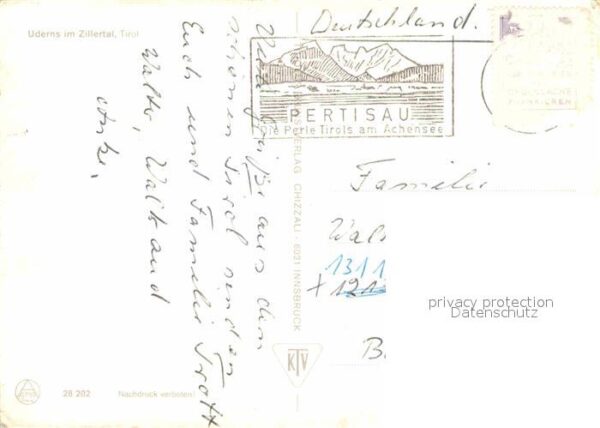 Uderns im Zillertal, Tirol
Deutschland.
PERTISAU
Die Perle Tirols am Achensee
Viele Grüße aus dem
schönen Tirol senden
Euch und Familie Trott
Walter, Waltraud
Anke.
VERLAG CHIZZALI · 6021 INNSBRUCK
Familie
Wal
1311
+ 121
B
privacy protection
Datenschutz
KTV
28 202
Nachdruck verboten!